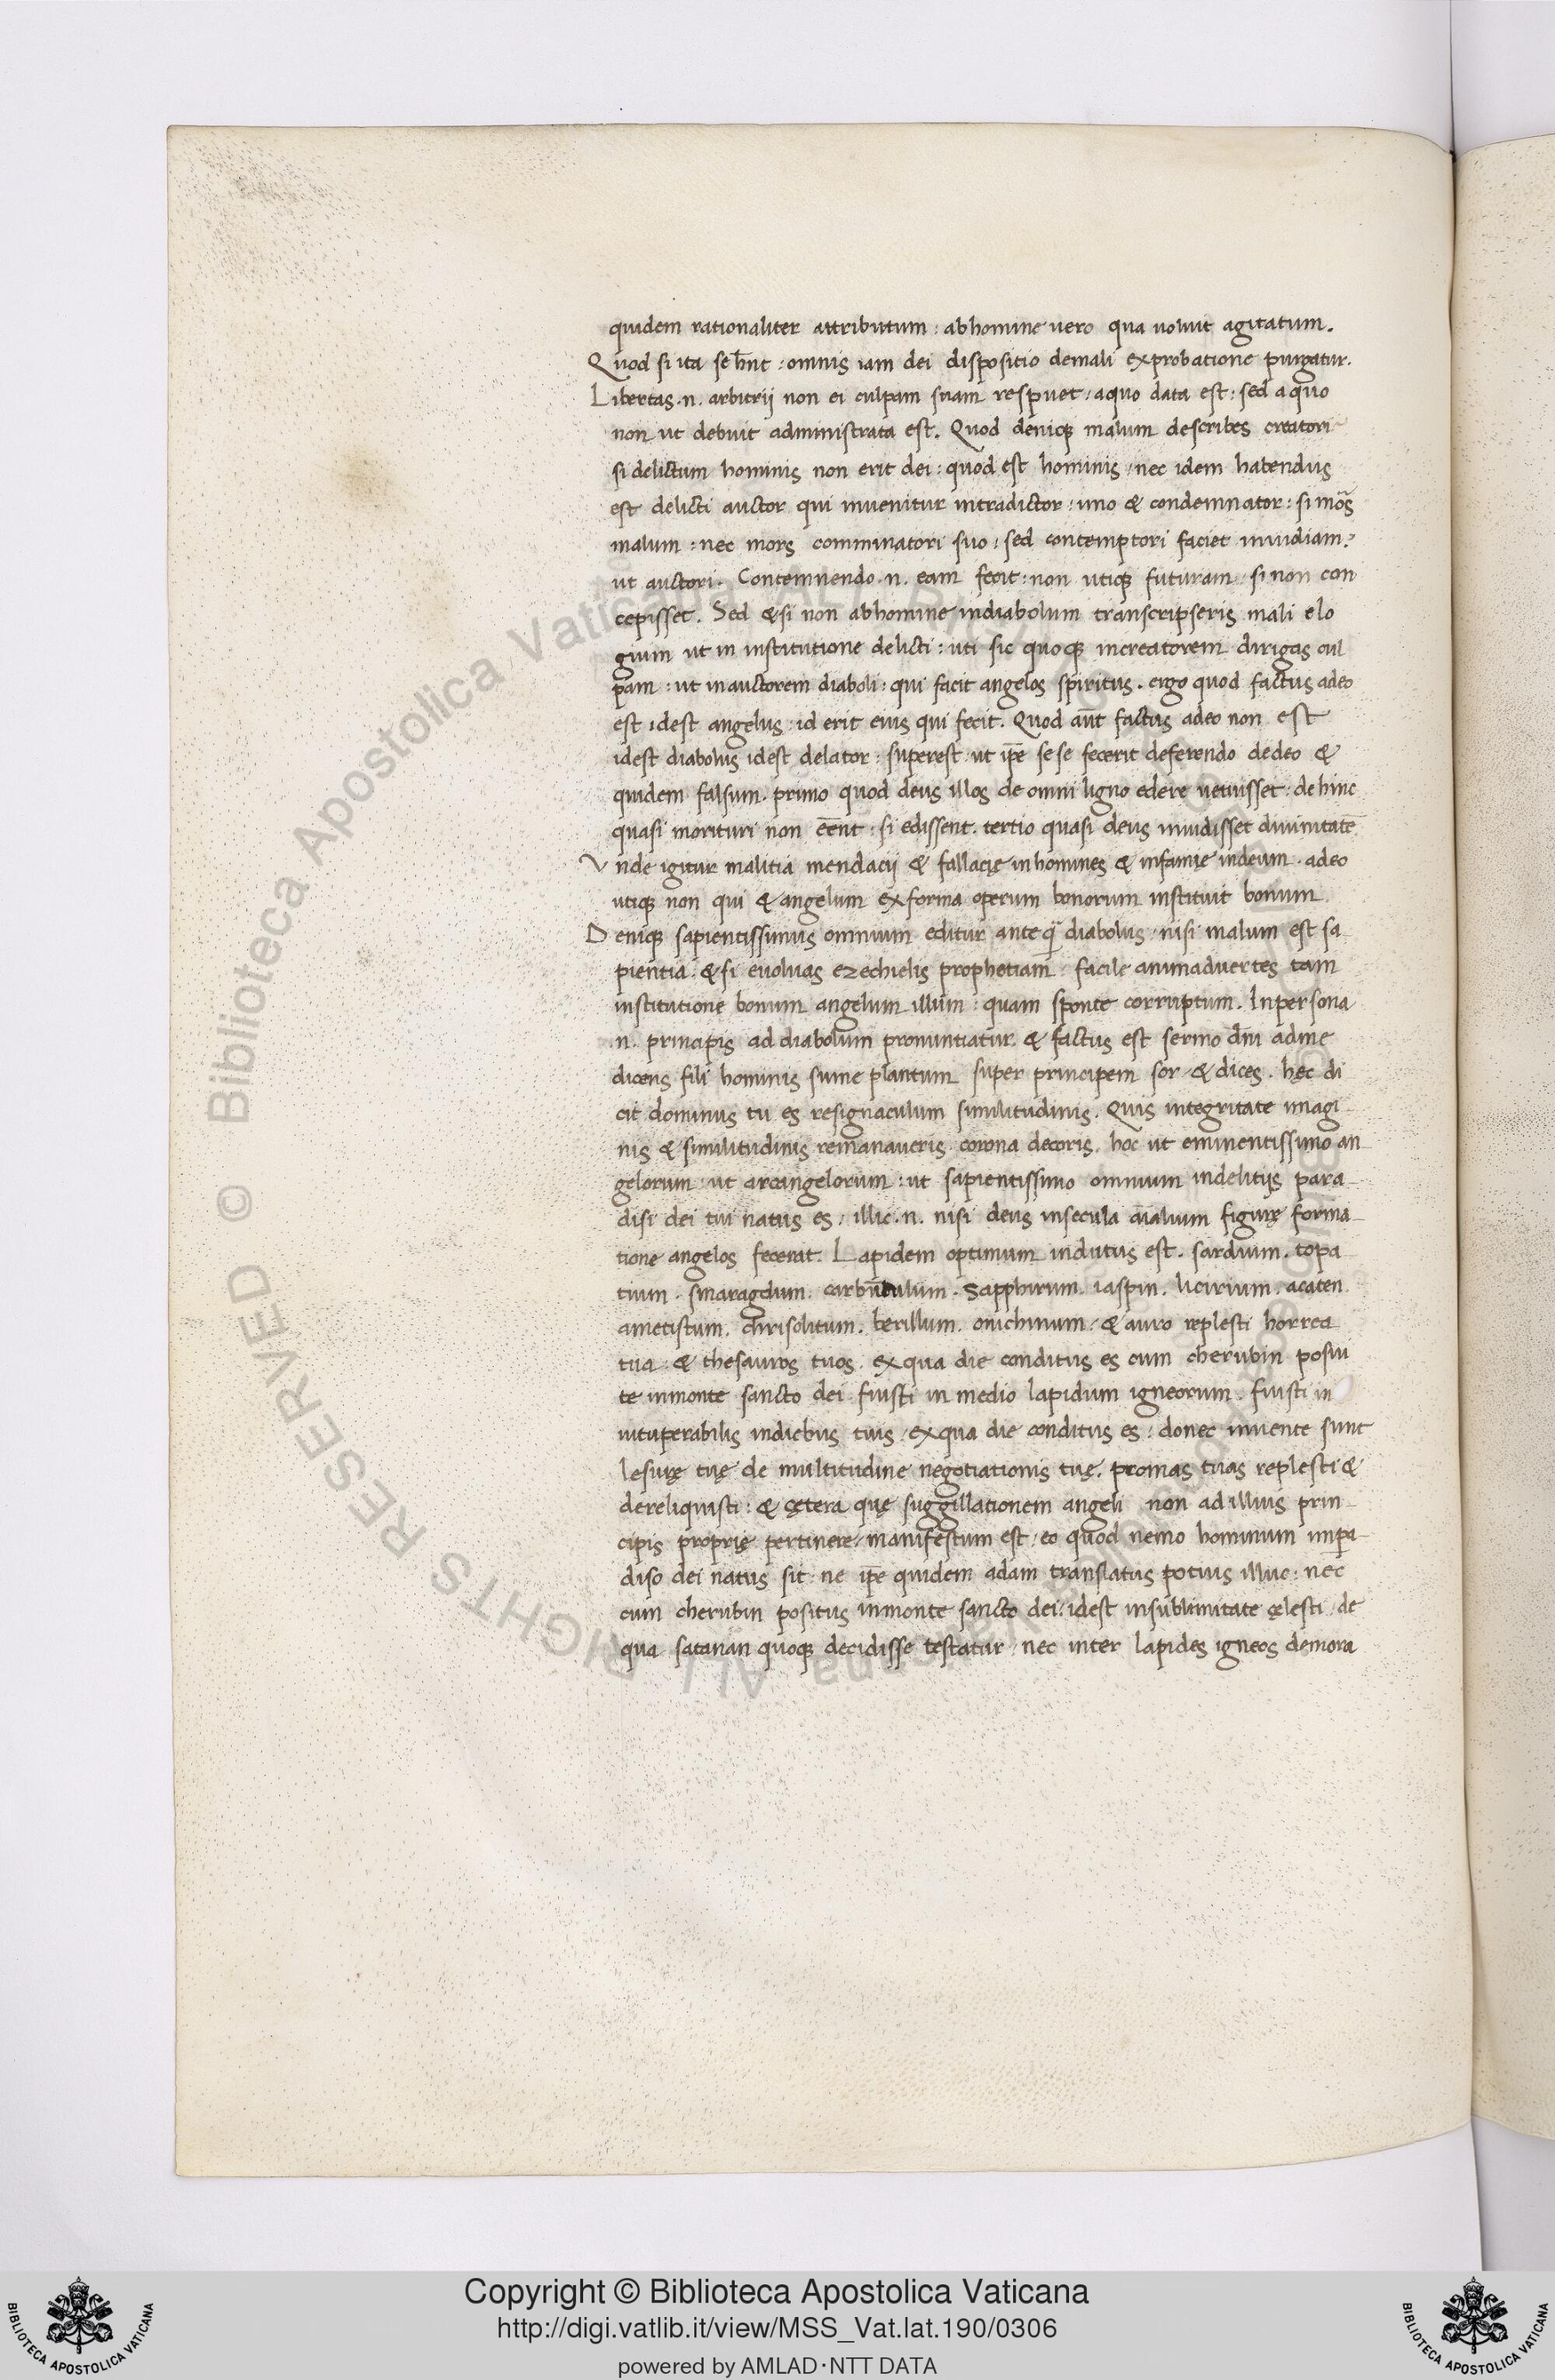 quidem rationaliter attributum : abhomine uero qua uoluit agitatum.
Quod si ita se hn̄t : omnis iam dei dispositio demali exprobatione purgatur.
Libertas .n. arbitrij non ei culpam suam respuet : aquo data est : sed aquo
non ut debuit administrata est. Quod deniq; malum describes creatori
si delictum hominis non erit dei : quod est hominis : nec idem habendus
est delicti auctor qui inuenitur intradictor : imo & condemnator : si mōs
malum : nec mors comminatori suo : sed contemptori faciet inuidiam :
ut auctori. Contemnendo .n. eam fecit : non utiq; futuram : si non con
cepisset. Sed & si non abhomine indiabolum transcripseris mali elo
gium ut in institutione delicti : uti sic quoq; increatorem dirigas cul
pam : ut inauctorem diaboli : qui facit angelos spiritus . ergo quod factus adeo
est idest angelus : id erit eius qui fecit. Quod aūt factus adeo non est
idest diabolus idest delator : superest ut ip̄e se se fecerit deferendo dedeo &
quidem falsum. primo quod deus illos de omni ligno edere uetuisset : dehinc
quasi morituri non eēnt : si edissent. tertio quasi deus inuidisset diuinitatē
Vnde igitur malitia mendacij & fallacię inhomines & infamię indeum . adeo
utiq; non qui & angelum exforma operum bonorum instituit bonum
Deniq; sapientissimus omnium editur anteq̄ diabolus : nisi malum est sa
pientia . & si euoluas ezechielis prophetiam : facile animaduertes tam
institutione bonum angelum illum : quam sponte corruptum. Inpersona
.n. principis ad diabolum pronuntiatur. & factus est sermo dn̄i adme
dicens fili hominis sume plantum super principem sor & dices . hęc di
cit dominus tu es resignaculum similitudinis. Quis integritate imagi
nis & similitudinis remanaueris corona decoris. hoc ut eminentissimo an
gelorum : ut arcangelorum : ut sapientissimo omnium indelitijs para
disi dei tui natus es : illic .n. nisi deus insecula aīalium figurę forma
tione angelos fecerat. Lapidem optimum indutus est. sardium. topa
tium . smaragdum. carbūculum . Sapphirum. iaspin. licirium. acaten
ametistum. chrisolitum. berillum. onichinum. & auro replesti horrea
tua & thesauros tuos . exqua die conditus es cum cherubin posui
te inmonte sancto dei fuisti in medio lapidum igneorum . fuisti in
uituperabilis indiebus tuis . exqua die conditus es : donec inuente sunt
lesurę tuę de multitudine negotiationis tuę. promas tuas replesti &
dereliquisti : & cętera quę suggillationem angeli non ad illius prin
cipis proprię pertinere manifestum est : eo quod nemo hominum inpa
diso dei natus sit : ne ip̄e quidem adam translatus potius illuc : nec
cum cherubin positus inmonte sancto dei idest insublimitate cęlesti : de
qua satanan quoq; decidisse testatur : nec inter lapides igneos demora
© Biblioteca Apostolica Vaticana ALL RIGHTS RESERVED
Copyright © Biblioteca Apostolica Vaticana
http://digi.vatlib.it/view/MSS_Vat.lat.190/0306
powered by AMLAD·NTT DATA
BIBLIOTECA APOSTOLICA VATICANA
BIBLIOTECA APOSTOLICA VATICANA